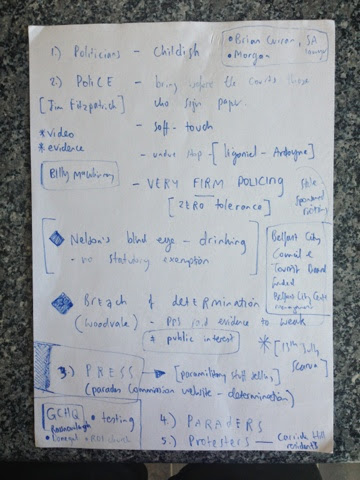 1.) Politicians - Childish
• Brian Curran, SA
lawyer
• Morgan
2.) POLICE - bring before the courts those
[Jim Fitzpatrick] who sign paper.
* video
* evidence
- soft-touch
- undue stop - [Ligoniel - Ardoyne]
Billy McWhirney
- VERY FIRM POLICING
[ZERO tolerance]
State
sponsored
rioting
Nelson's blind eye - drinking
- no statutory exemption
Belfast City
Council &
Tourist Board
funded
Belfast City Centre
management
BREACH of dETERMINATION
(Woodvale) - PPS said evidence to weak
& public interest
* [12th July
Scarva]
3.) PRESS → [paramilitary stuff sellers]
(parades commission website - determinations)
GCHQ • testing
• Donegal • ROI church
4.) PARADERS
5.) Protesters - Carrick Hill
residents